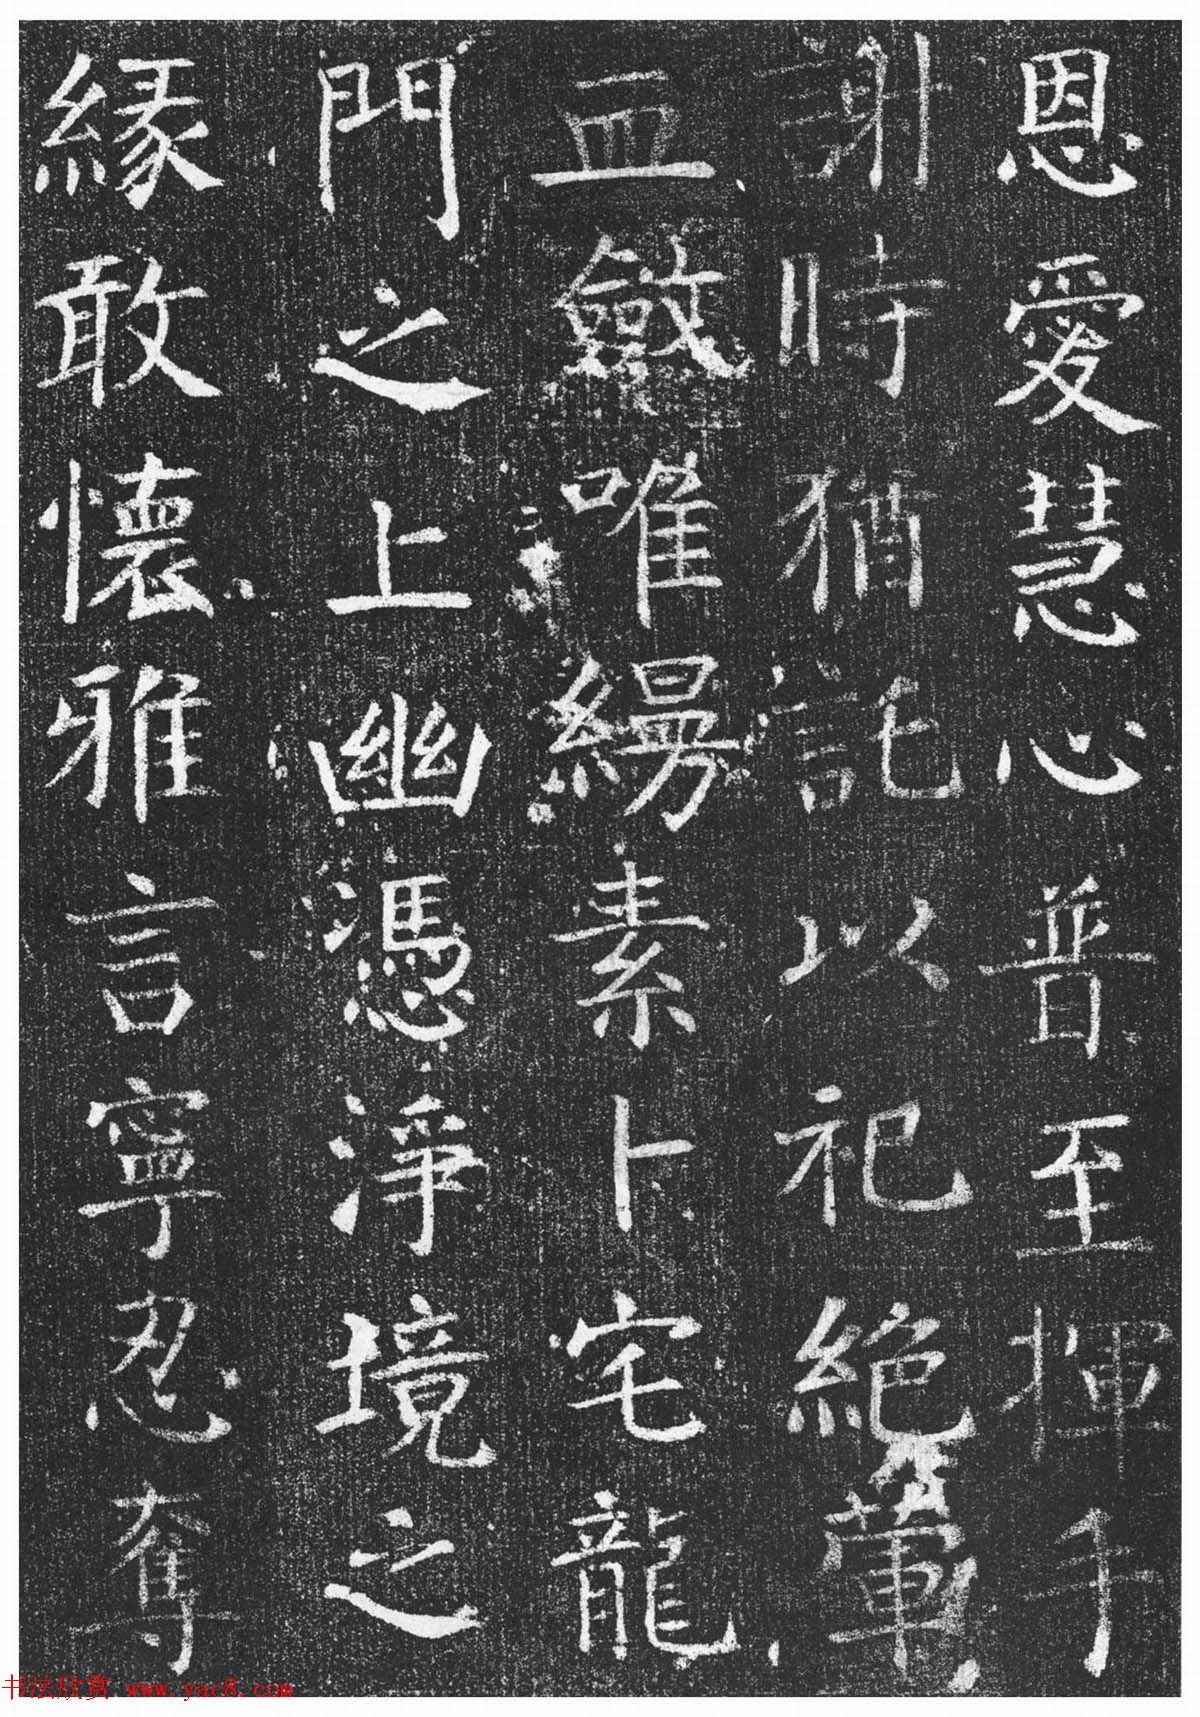 恩愛慧心普至揮手
謝時猶託以祀絶葷
血斂唯縵素卜宅龍
門之上幽憑淨境之
緣敢懷雅言寧忍奪
书法欣赏 www.yac8.com